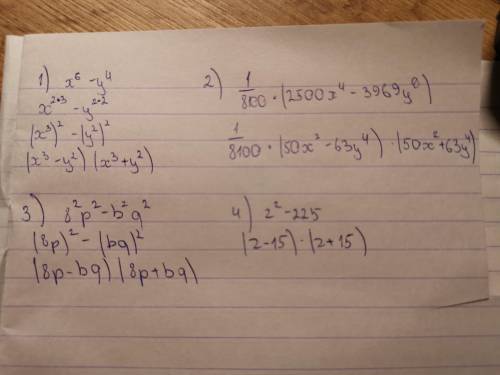 1) x⁶ - y⁴
x^(2·3) - y^(2·2)
(x³)² - (y²)²
(x³ - y²) (x³ + y²)
2) 1/8100 · (2500x⁴ - 3969y⁸)
1/8100 · (50x² - 63y⁴) · (50x² + 63y⁴)
3) 8²p² - b²q²
(8p)² - (bq)²
(8p - bq) (8p + bq)
4) z² - 225
(z - 15) · (z + 15)